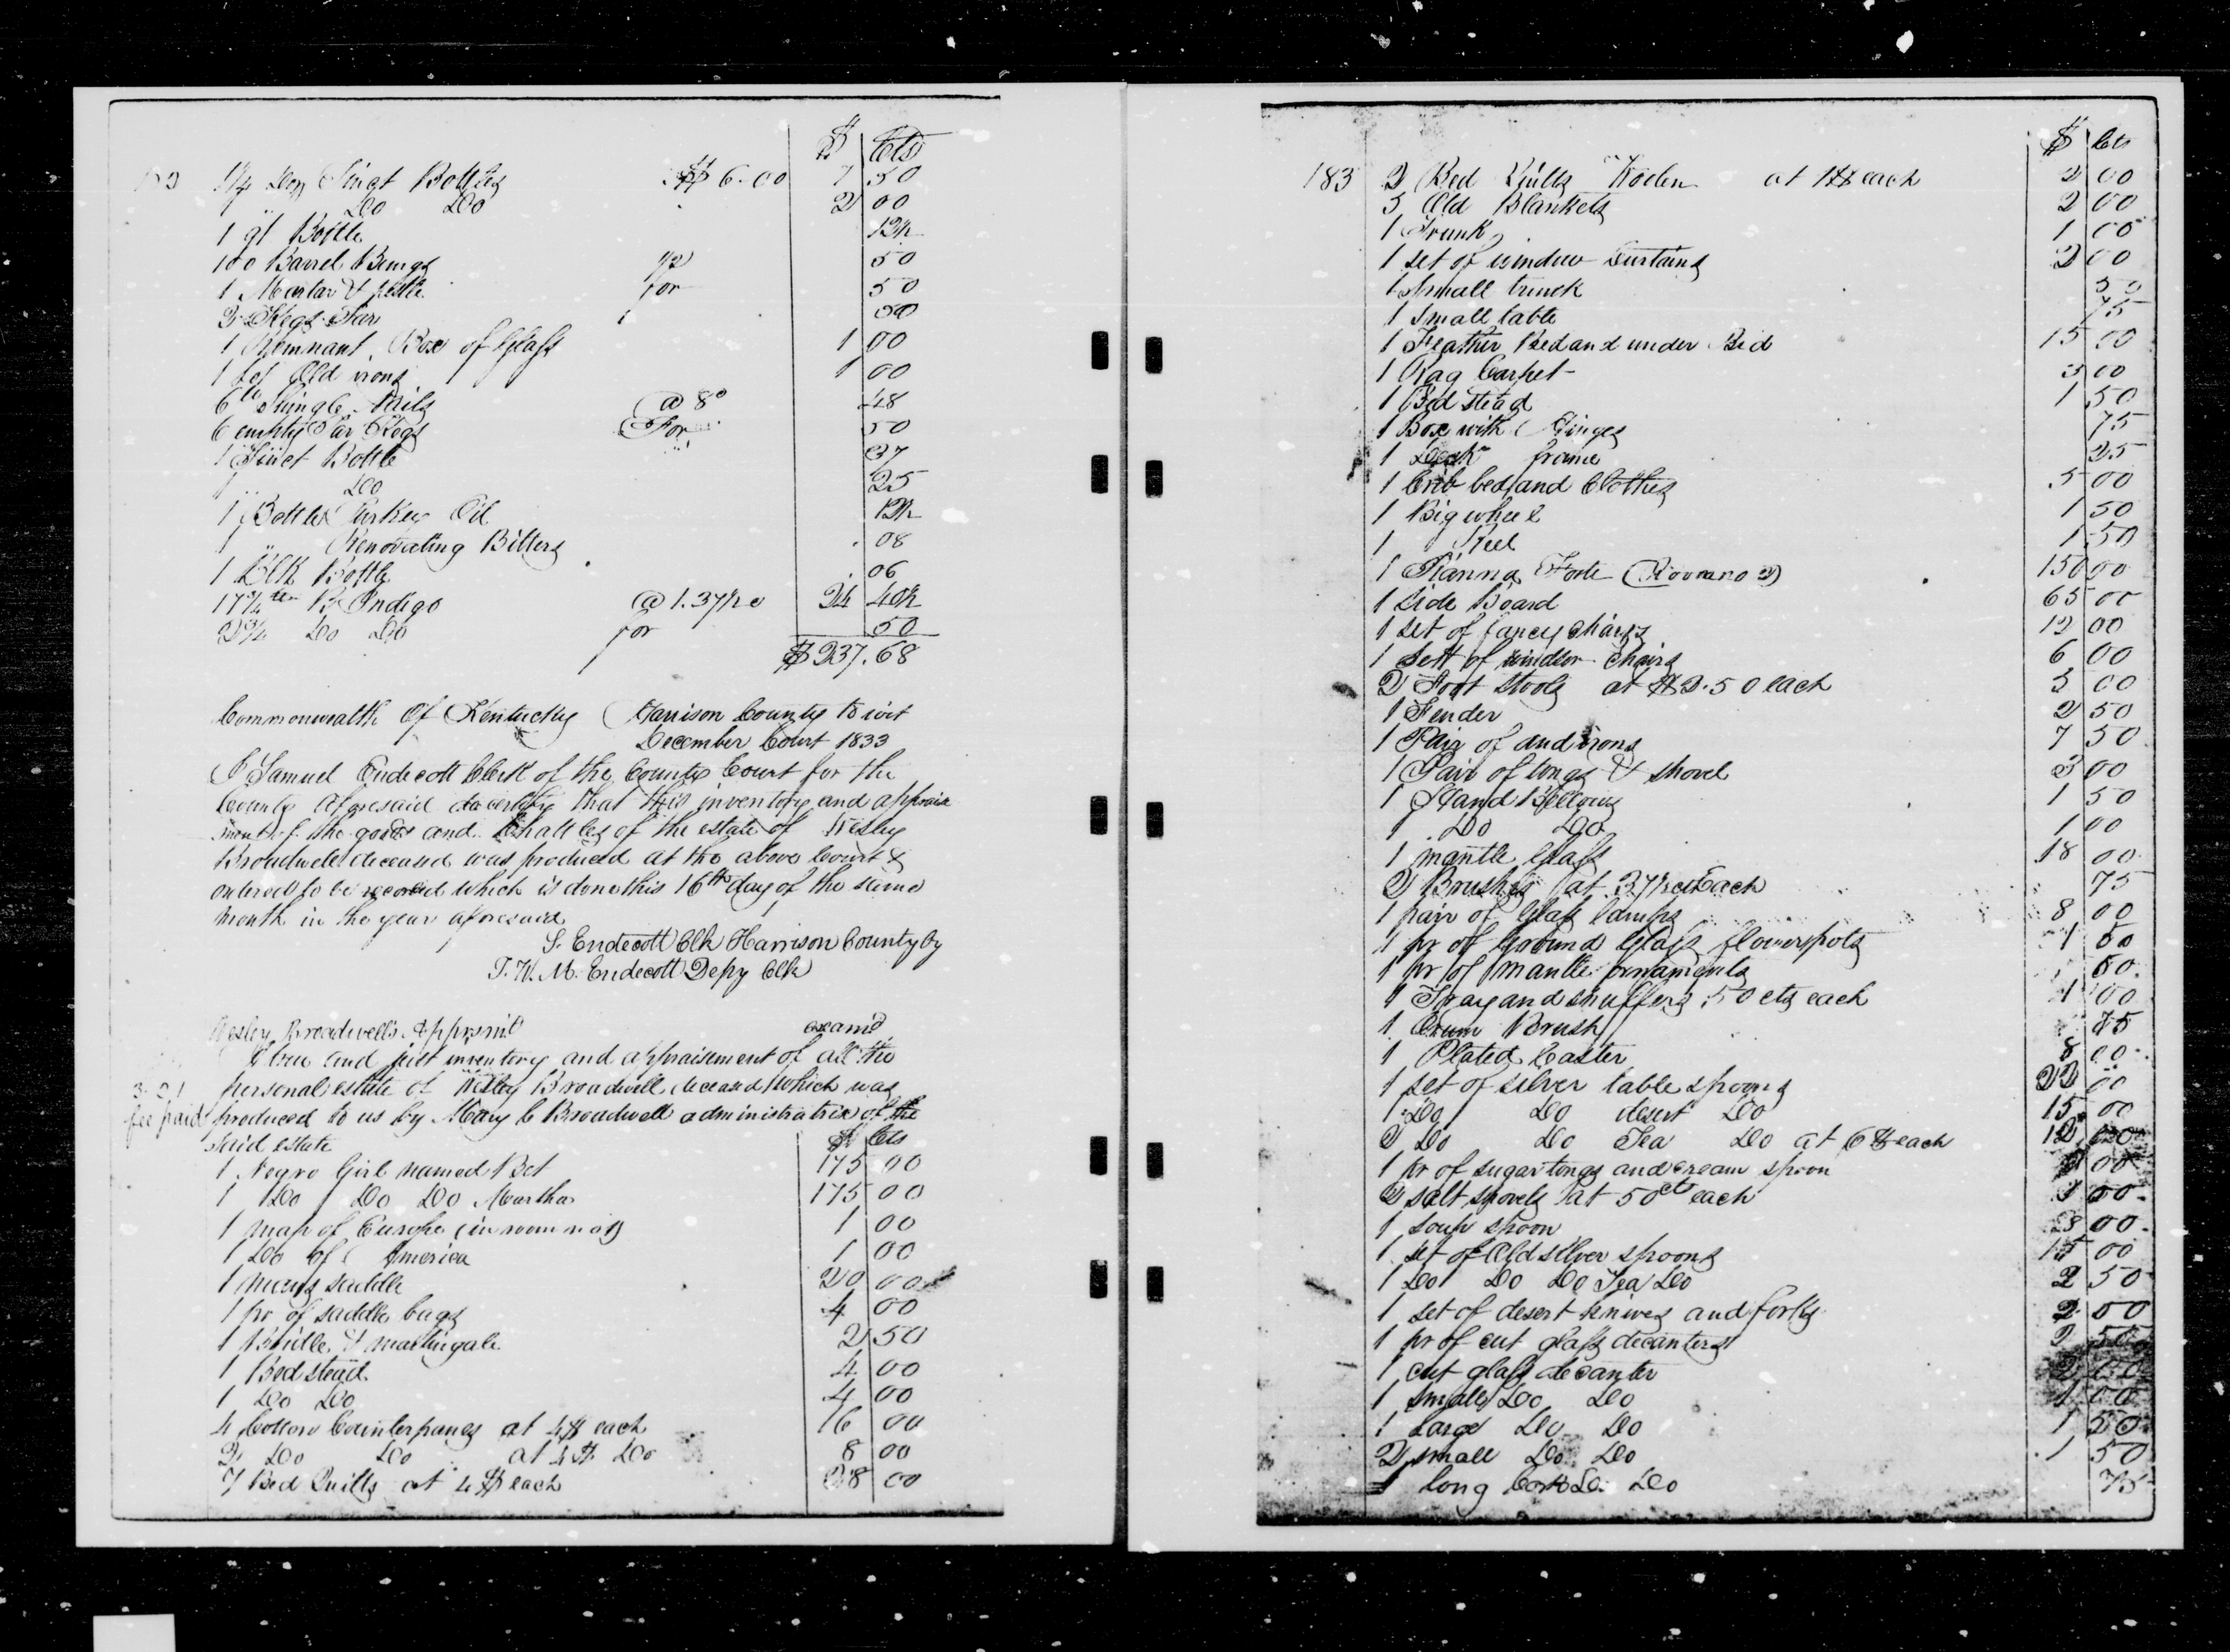 $ | Cts
1¼ Doz Tinct Bottles $6.00 7 50
1 Do Do 2 00
1 qt Bottle 12½
100 Barrel Bungs 50
1 Mortar & pestle for 50
2 Kegs Tar 50
1 Remnant Box of Glass 1 00
1 Lot Old irons 1 00
6 lb Shingle Nails @ 8c 48
6 empty Tar Kegs For 50
1 Tinct Bottle 37
1 Do 25
1 Bottle Turkey Oil 12½
1 " Renovating Bitters 08
1 Blk Bottle 06
17¾ B Indigo @ 1.37½ c 24 40½
2¾ Do Do for 50
$237.68
Commonwealth Of Kentucky Harrison County to wit
December Court 1833
I Samuel Endecott Clerk of the County Court for the
County Aforesaid do certify that this inventory and apprais
ment of the goods and Chattles of the estate of Wesley
Broadwell deceased was produced at the above Court &
ordered to be record which is done this 16th day of the same
month in the year aforesaid
S. Endecott Clk Harrison County by
T. W. M. Endecott Depy Clk
Wesley Broadwell's Apprsmt examd
A true and just inventory and appraisement of all the
personal estate of Wesley Broadwell deceased which was
fee paid
produced to us by Mary C Broadwell administratrix of the
said estate $ Cts
1 Negro Girl named Bet 175 00
1 Do Do Do Martha 175 00
1 map of Europe (in room no 1) 1 00
1 Do of America 1 00
1 mens saddle 20 00
1 pr of saddle bags 4 00
1 Bridle & martingale 2 50
1 Bed stead 4 00
1 Do Do 4 00
4 Cotton Counterpanes at 4$ each 16 00
2 Do Do at 4$ Do 8 00
7 Bed Quilts at 4$ each 28 00
$ | Cts
183 2 Bed Quilts Woolen at 1$ each 2 00
3 Old Blankets 2 00
1 Trunk 1 00
1 set of window Curtains 2 00
1 Small trunk 50
1 small table 75
1 Feather Bed and under Bed 15 00
1 Rag Carpet 3 00
1 Bed Stead 1 50
1 Box with Hinges 75
1 Desk frame 25
1 Crib bed and Clothes 5 00
1 Big wheel 1 50
1 Reel 1 50
1 Pianna Forte (Room no 2) 150 00
1 Side Board 65 00
1 set of fancy chairs 12 00
1 sett of windsor Chairs 6 00
2 Foot stools at $2.50 each 5 00
1 Fender 2 50
1 Pair of andirons 7 50
1 Pair of tongs & shovel 3 00
1 Hand Bellows 1 50
1 Do Do 1 00
1 mantle Glass 18 00
2 Brushes at 37½ cts Each 75
1 pair of Glass lamps 8 00
1 pr of Ground Glass flowerpots 1 00
1 pr of mantle ornaments 50
1 Tray and snuffers 50 cts each 1 00
1 Crum Brush 75
1 Plated Caster 8 00
1 set of silver table spoons 22 00
1 Do Do desert Do 15 00
2 Do Do Tea Do at 6$ each 12 00
1 pr of sugar tongs and cream spoon 00
2 salt shovels at 50 cts each 1 00
1 soup spoon 00
1 set of Old silver spoons 15 00
1 Do Do Do Tea Do 2 50
1 set of desert knives and forks 2 00
1 pr of cut glass decanters 50
1 cut glass decanter 2 00
1 small Do Do 1 00
1 Large Do Do 1 50
2 small Do Do 1 50
1 long Do Do 75